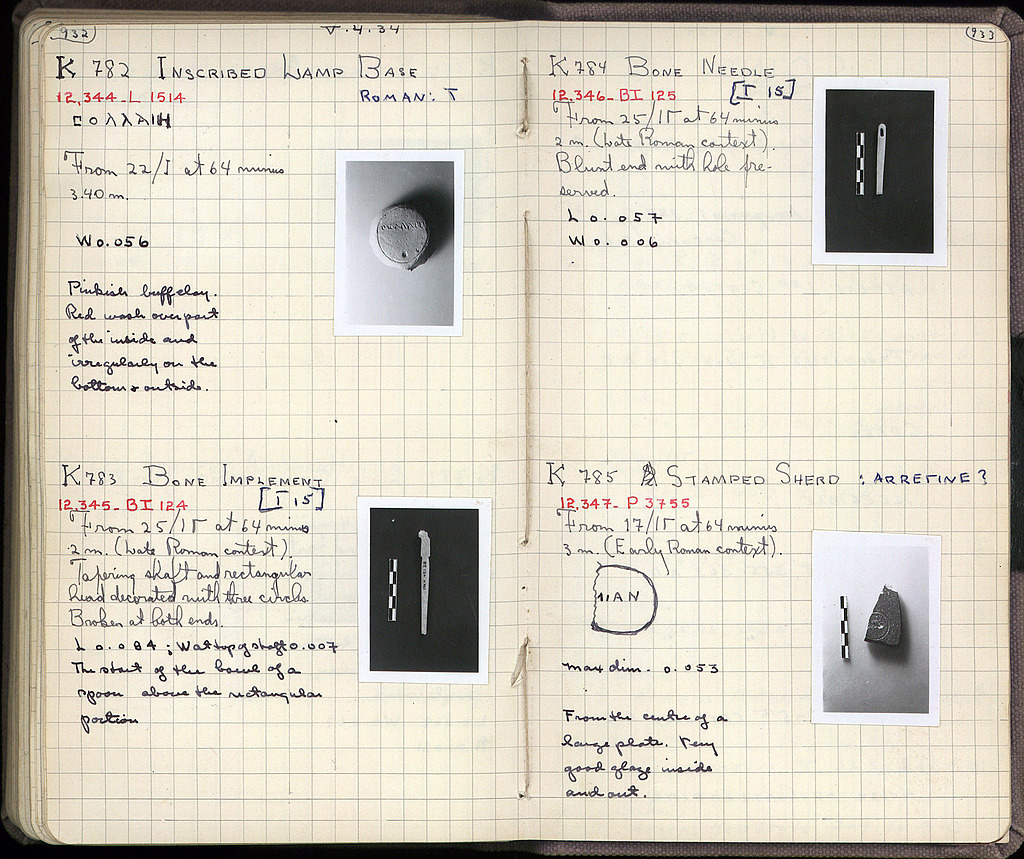 932
V.4.34
K 782 INSCRIBED LAMP BASE
12,344 - L 1514
ROMAN: I
From 22/I at 64 minus
3.40 m.
W 0.056
Pinkish buff clay.
Red wash over part
of the inside and
irregularly on the
bottom & outside.
K 783 BONE IMPLEMENT
12,345 - BI 124
[I 15]
From 25/ΙΓ at 64 minus
2 m. (Late Roman context).
Tapering shaft and rectangular
head decorated with three circles.
Broken at both ends.
L 0.084; W at top of shaft 0.007
The start of the bowl of a
spoon above the rectangular
portion
933
K 784 BONE NEEDLE
12,346 - BI 125
[I 15]
From 25/ΙΓ at 64 minus
2 m. (Late Roman context).
Blunt end with hole pre-
served.
L 0.057
W 0.006
K 785 STAMPED SHERD : ARRETINE?
12,347 - P 3755
From 17/ΙΓ at 64 minus
3 m. (Early Roman context).
max dim. 0.053
From the centre of a
large plate. Very
good glaze inside
and out.